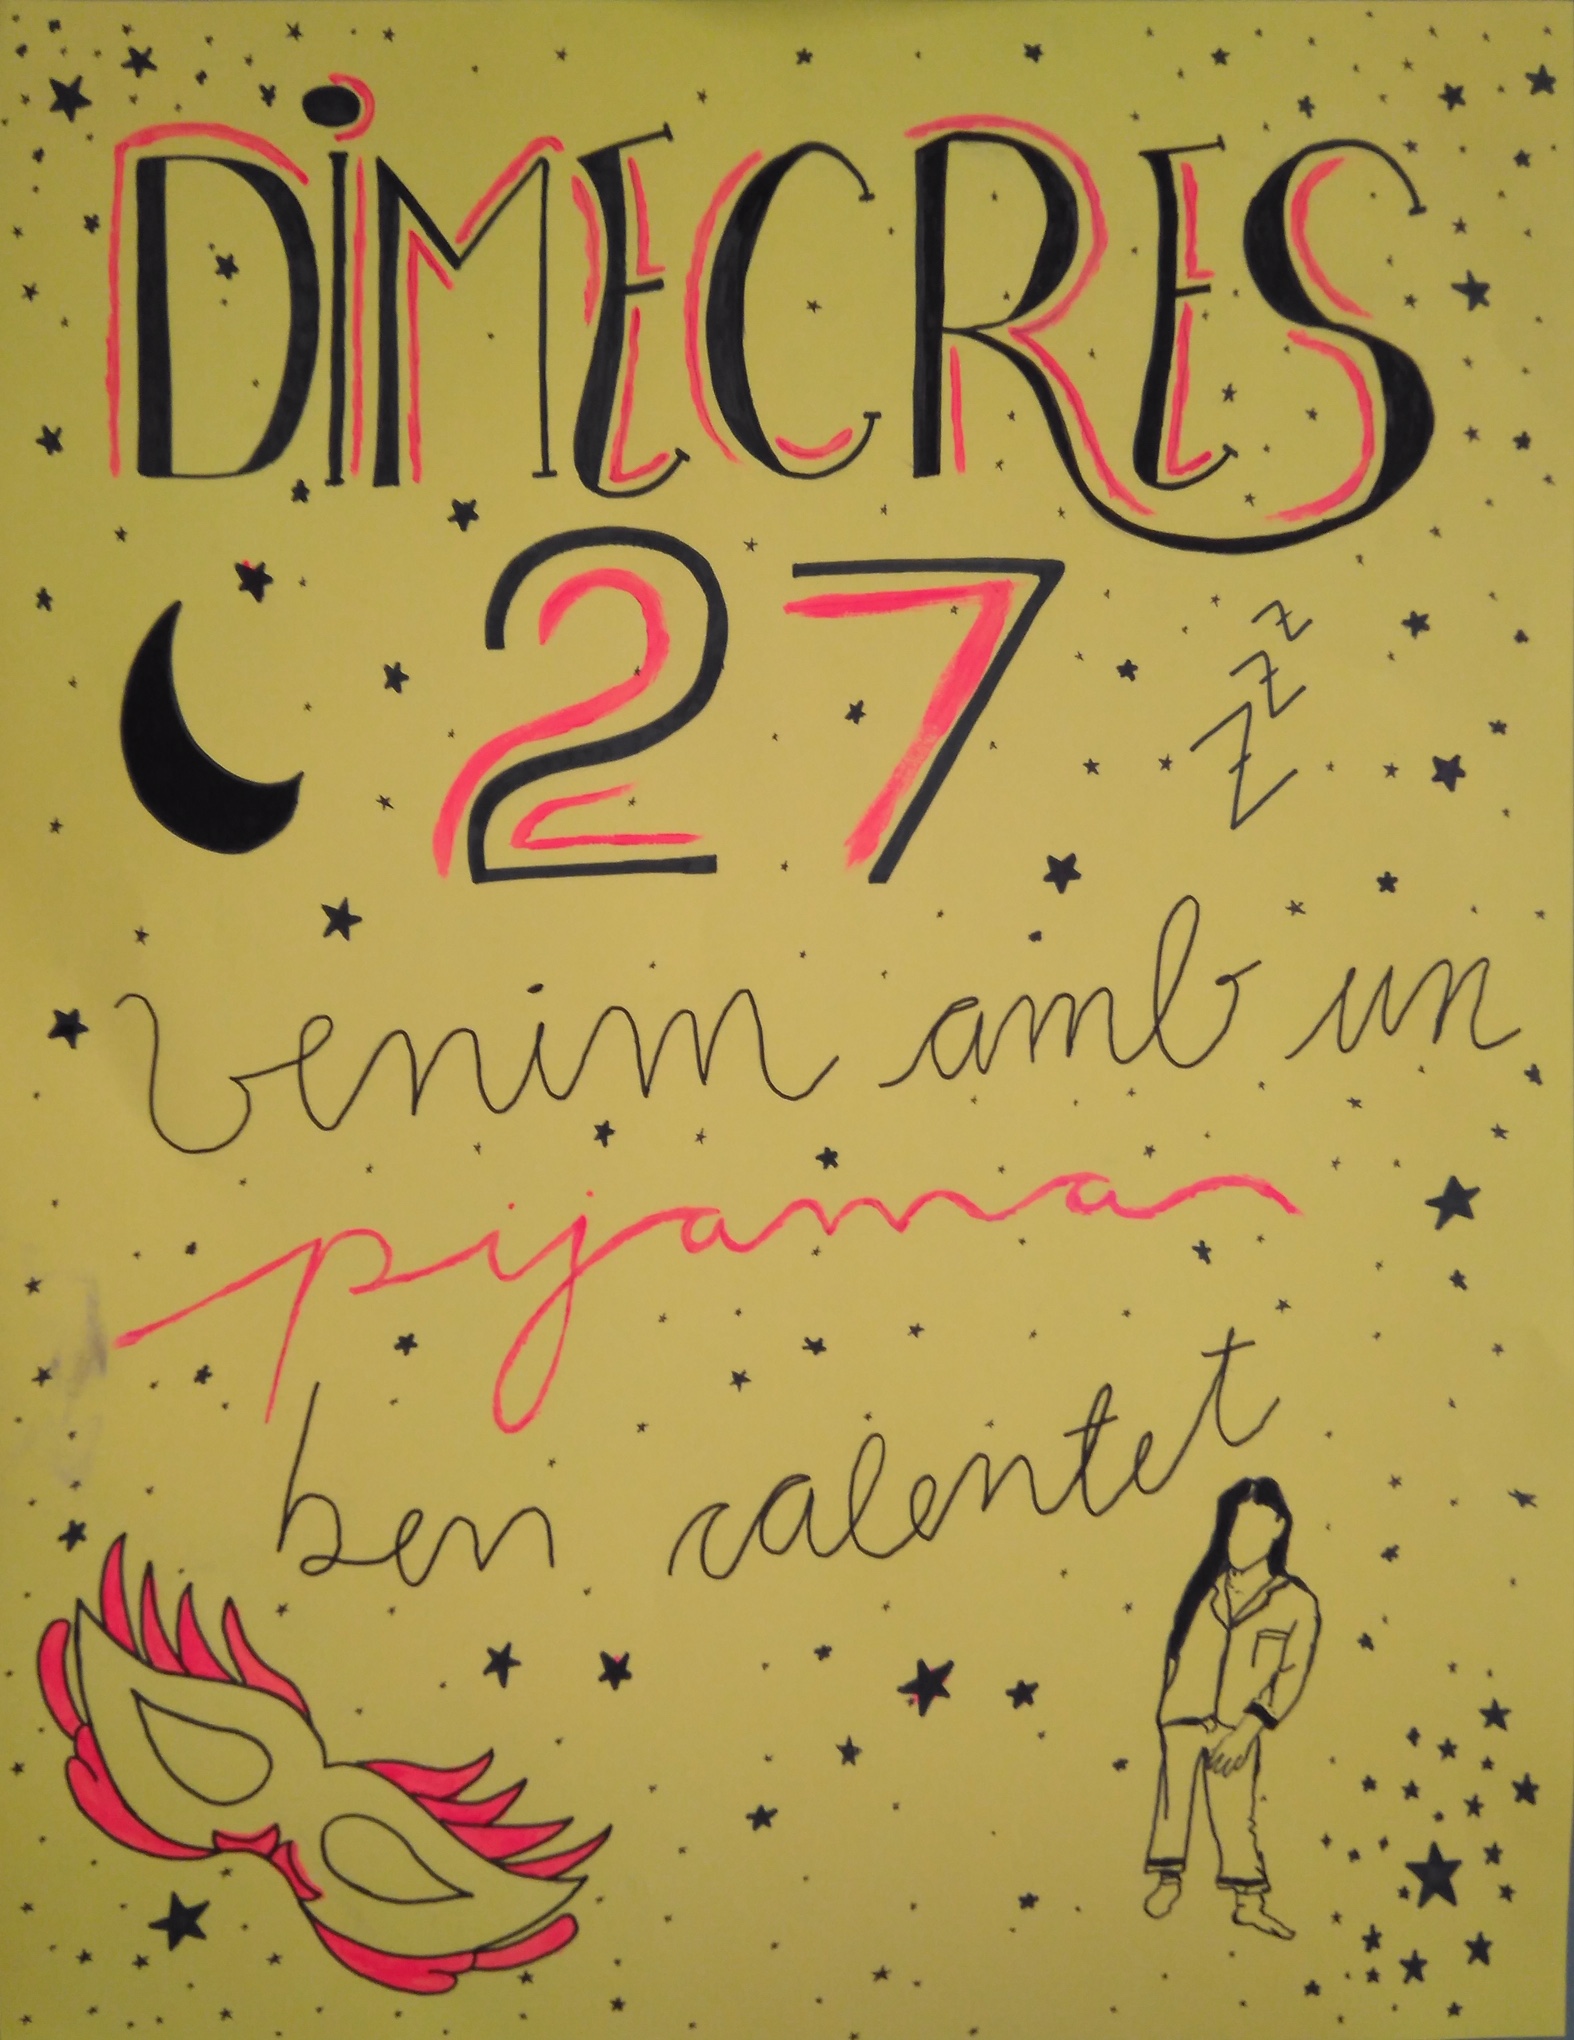 DiMECRES
27
z
z
Z
venim amb un
pijama
ben calentet